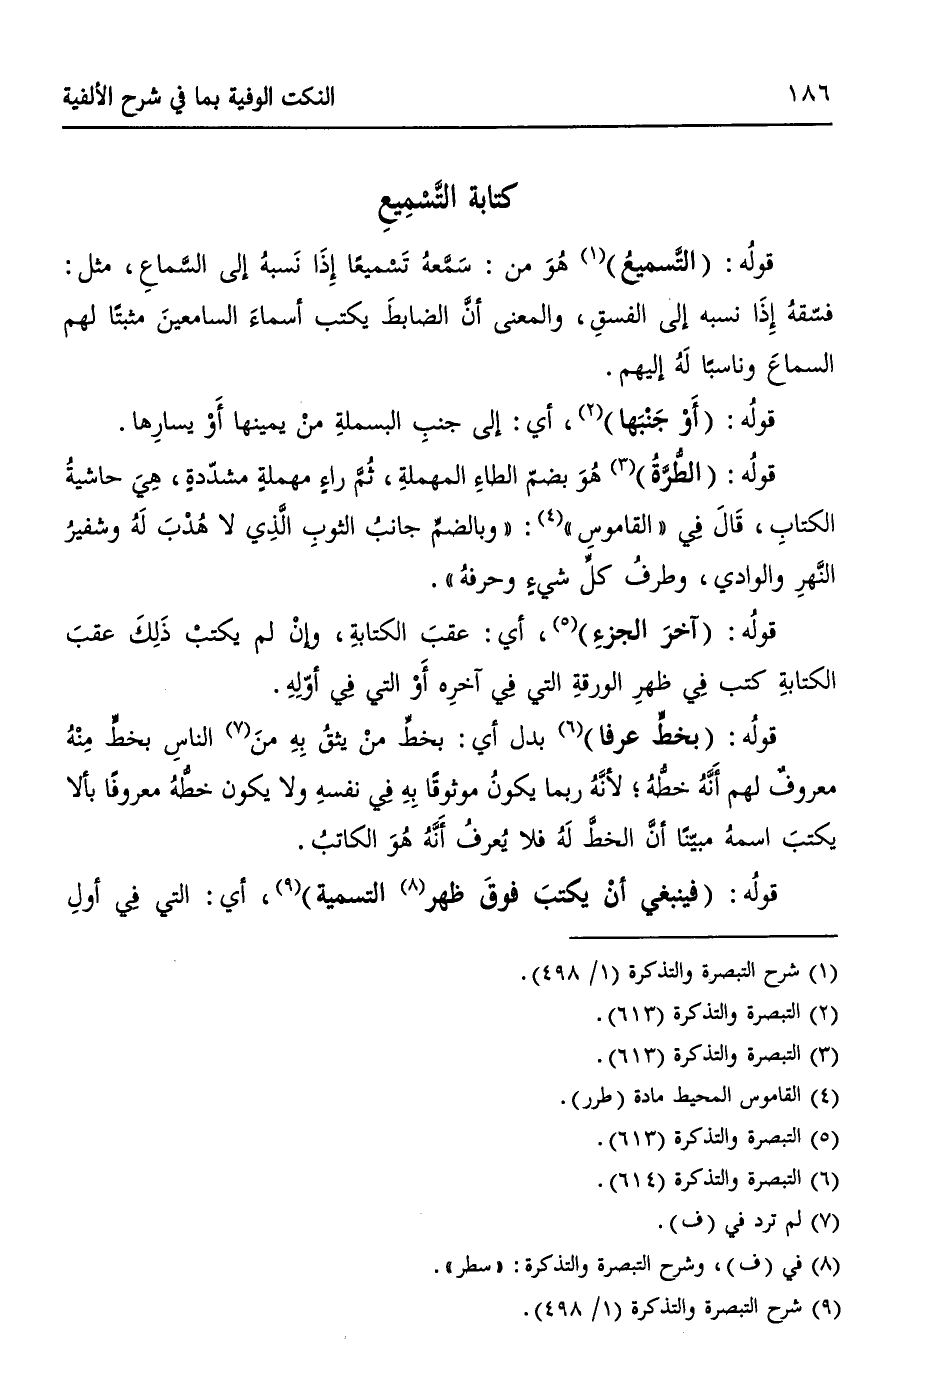 ١٨٦ النكت الوفية بما في شرح الألفية
كتابة التَّسْمِيعِ
قولُه : (التَّسميعُ)(١) هُوَ من : سَمَّعهُ تَسْميعًا إِذَا نَسبهُ إلى السَّماعِ ، مثل :
فسّقهُ إِذَا نسبه إلى الفسقِ ، والمعنى أنَّ الضابطَ يكتب أسماءَ السامعينَ مثبتًا لهم
السماعَ وناسبًا لَهُ إليهم .
قولُه : (أَوْ جَنْبَها)(٢) ، أي : إلى جنبِ البسملةِ منْ يمينها أَوْ يسارِها .
قولُه : (الطُّرَّةُ)(٣) هُوَ بضمّ الطاءِ المهملةِ ، ثُمَّ راءٍ مهملةٍ مشدّدةٍ ، هِيَ حاشيةُ
الكتابِ ، قَالَ فِي «القاموسِ»(٤) : «وبالضمِّ جانبُ الثوبِ الَّذِي لا هُدْبَ لَهُ وشفيرُ
النَّهرِ والوادي ، وطرفُ كلِّ شيءٍ وحرفهُ» .
قولُه : (آخرَ الجزءِ)(٥) ، أي : عقبَ الكتابةِ ، وإنْ لم يكتبْ ذَلِكَ عقبَ
الكتابةِ كتب فِي ظهرِ الورقةِ التي فِي آخرِه أَوْ التي فِي أوّلِهِ .
قولُه : (بخطٍّ عرفا)(٦) بدل أي : بخطِّ منْ يثقُ بِهِ منَ(٧) الناسِ بخطٍّ مِنْهُ
معروفٌ لهم أَنَّهُ خطُّهُ ؛ لأنَّهُ ربما يكونُ موثوقًا بِهِ فِي نفسهِ ولا يكون خطُّهُ معروفًا بألا
يكتبَ اسمهُ مبيّنًا أنَّ الخطَّ لَهُ فلا يُعرفُ أَنَّهُ هُوَ الكاتبُ .
قولُه : (فينبغي أنْ يكتبَ فوقَ ظهر(٨) التسمية)(٩) ، أي : التي فِي أولِ
(١) شرح التبصرة والتذكرة (١/ ٤٩٨) .
(٢) التبصرة والتذكرة (٦١٣) .
(٣) التبصرة والتذكرة (٦١٣) .
(٤) القاموس المحيط مادة (طرر) .
(٥) التبصرة والتذكرة (٦١٣) .
(٦) التبصرة والتذكرة (٦١٤) .
(٧) لم ترد في (ف) .
(٨) في (ف) ، وشرح التبصرة والتذكرة : «سطر» .
(٩) شرح التبصرة والتذكرة (١/ ٤٩٨) .